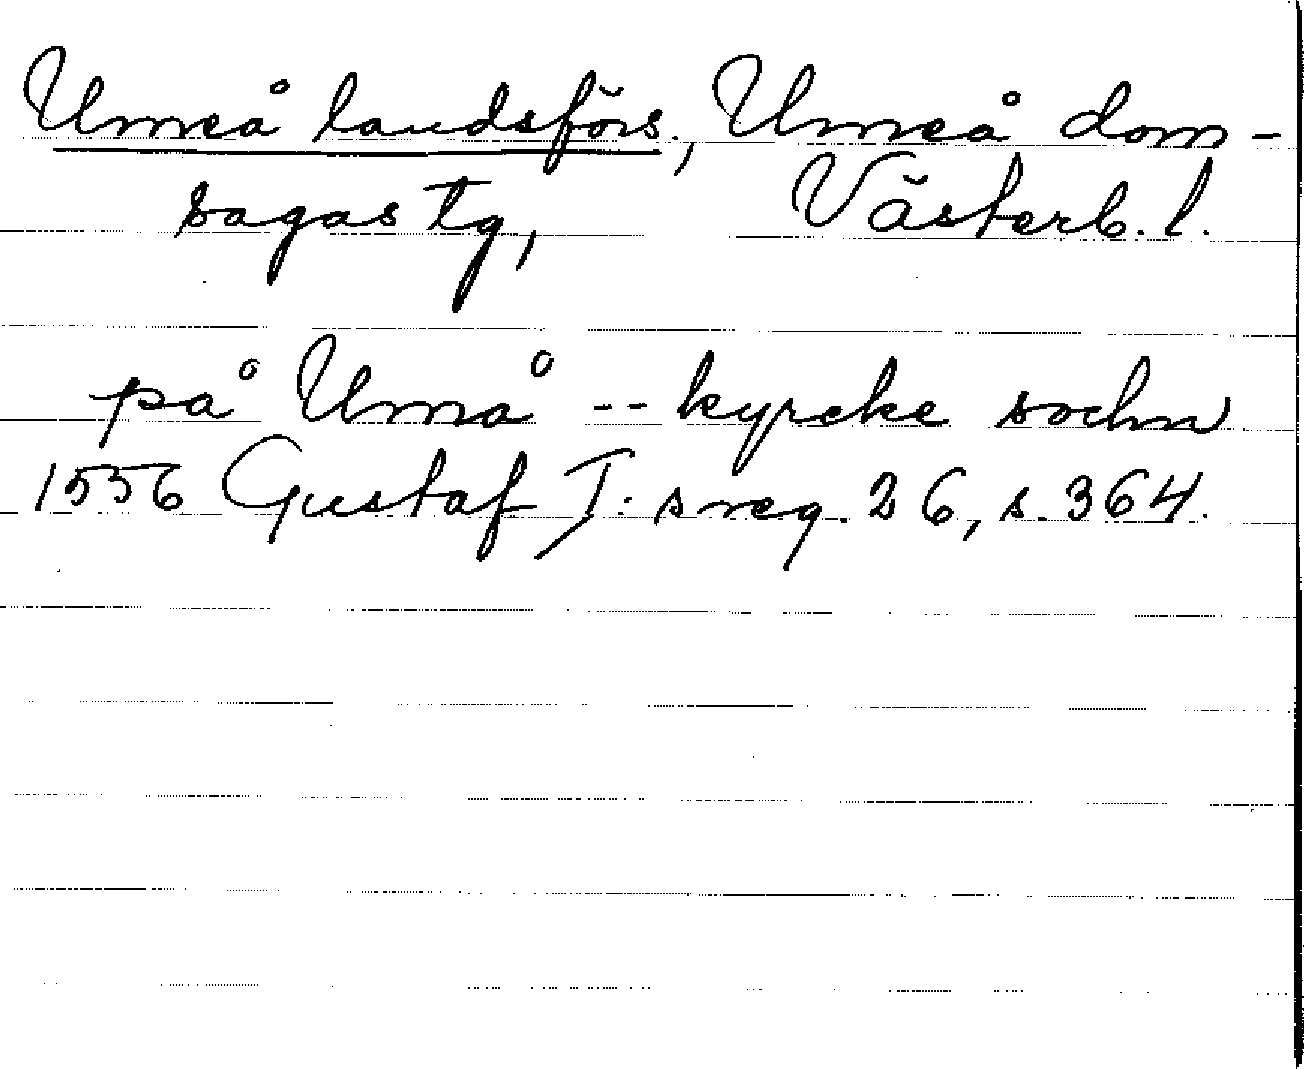 Umeå landsförs., Umeå dom-
sagas tg, Västerb. l.
på Umå -- kyrcke sochn
1556 Gustaf I:s reg. 26, s. 364.